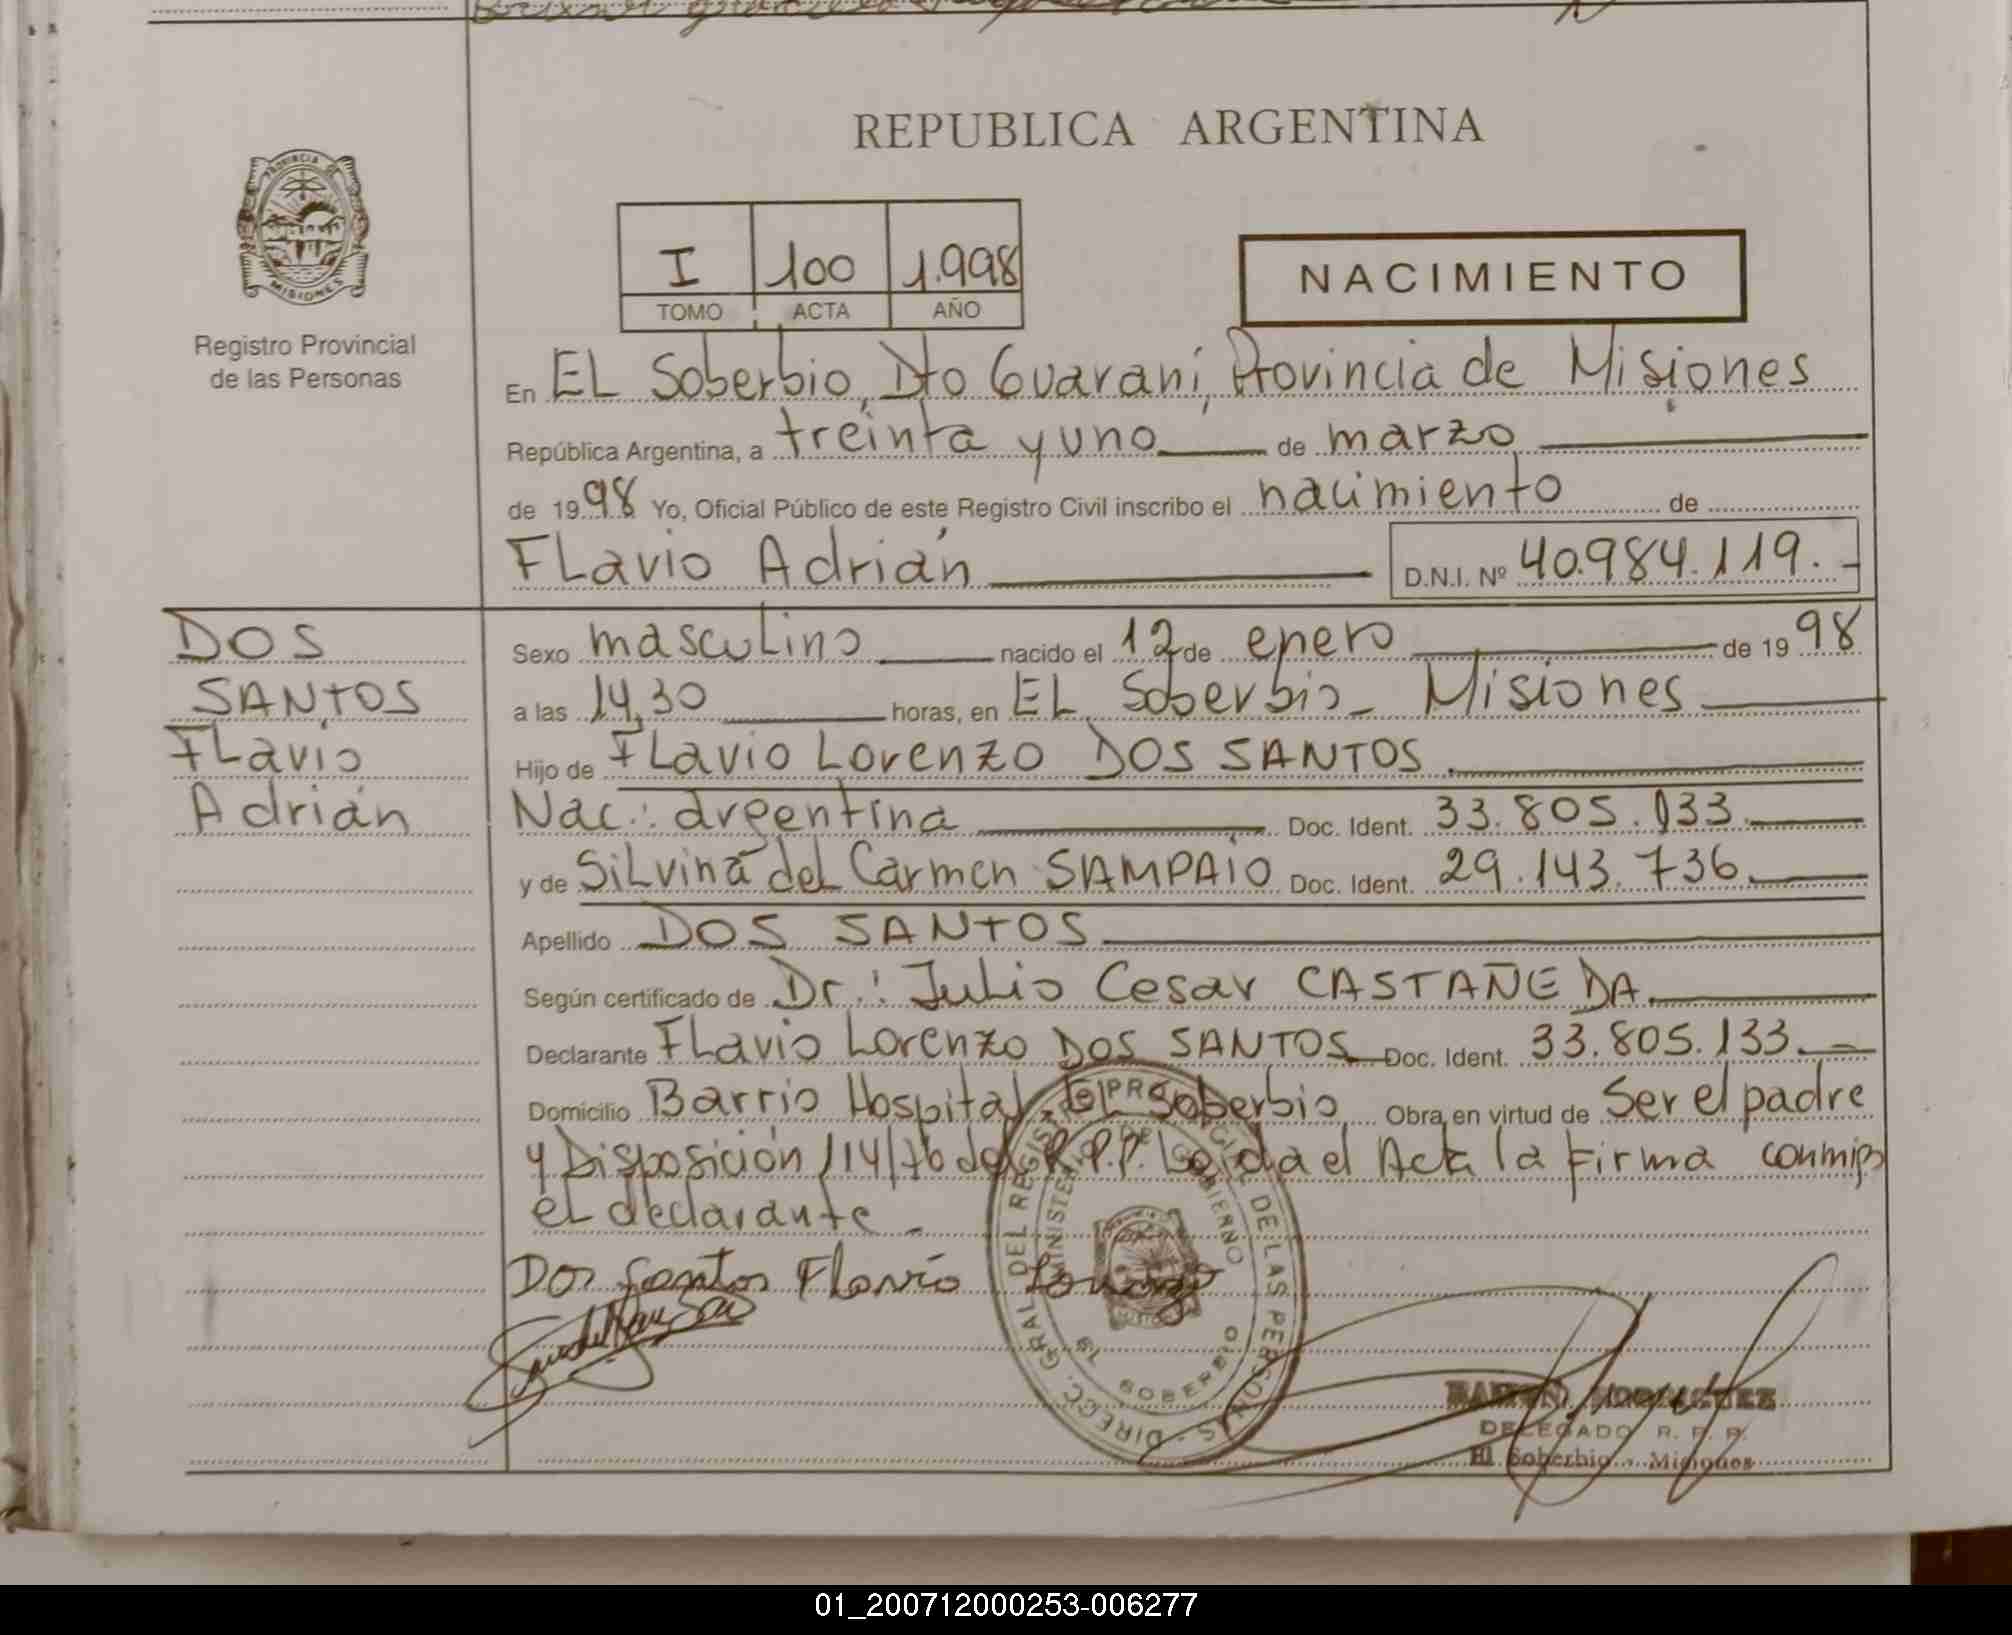 REPUBLICA ARGENTINA
PROVINCIA DE
MISIONES
Registro Provincial
de las Personas
I 100 1.998
TOMO ACTA AÑO
NACIMIENTO
En EL Soberbio, Dto Guaraní, Provincia de Misiones
República Argentina, a treinta y uno de marzo
de 1998 Yo, Oficial Público de este Registro Civil inscribo el nacimiento de
FLavio Adrián D.N.I. Nº 40.984.119.-
DOS
SANTOS
FLavio
Adrián
Sexo mascuLino nacido el 12 de enero de 1998
a las 14,30 horas, en EL Soberbio - Misiones
Hijo de FLavio Lorenzo DOS SANTOS
Nac.: argentina Doc. Ident. 33.805.133
y de SiLvina deL Carmen SAMPAIO Doc. Ident. 29.143.736
Apellido DOS SANTOS
Según certificado de Dr.: Julio Cesar CASTAÑEDA
Declarante FLavio Lorenzo DOS SANTOS Doc. Ident. 33.805.133
Domicilio Barrio Hospital, EL Soberbio Obra en virtud de Ser el padre
y Disposición 114/76 del R.P.P. Leida el Acta la firma conmigo
el declarante -
Dos Santos Flavio Lorenzo
DIRECC. GRAL DEL REGIST PR DE LAS PERSONAS
MINISTERIO DE GOBIERNO
SOBERBIO
DELEGADO R. P. P.
El Soberbio - Misiones
01_200712000253-006277